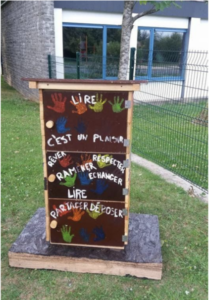 LIRE
C'EST UN PLAISIR
RÊVER RESPECTER
RAMENER
ECHANGER
LIRE
PARTAGER DÉPOSER